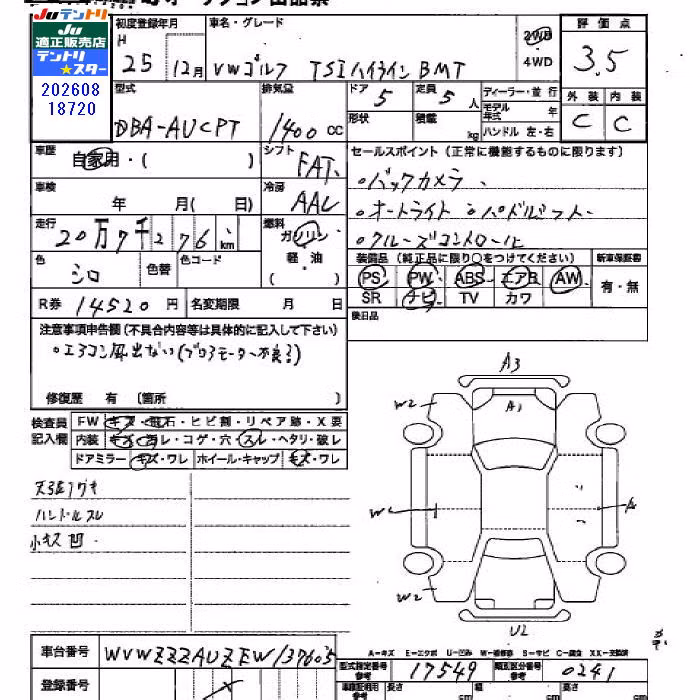 Juテントリ
適正販売店
テントリ
★スター
202608
18720
初度登録年月
H 25 12月
車名・グレード
VWゴルフ TSIハイライン BMT
2WD
4WD
評価点
3.5
型式
DBA-AUCPT
排気量
1400 cc
ドア 5
定員 5人
形状
積載 kg
ディーラー・並行
モデル年式
ハンドル 左・右
外装 内装
C C
車歴
自家用・( )
シフト
FAT
セールスポイント (正常に機能するものに限ります)
・バックカメラ
・オートライト ・パドルシフト
・クルーズコントロール
車検
年 月( 日)
冷房
AAC
走行
20万7千276 km
燃料
ガソリン
軽・油
( )
色
シロ
色替
色コード
装備品 (純正品に限り○をつけてください)
新車保証書
PS PW ABS エアB AW
SR ナビ TV カワ
有・無
R券 14520円
名変期限 月 日
後日品
注意事項申告欄 (不具合内容等は具体的に記入して下さい)
・エアコン風出ない(ブロアモーター不良?)
修復歴 有 〔箇所 〕
検査員
記入欄
FW キズ・飛石・ヒビ割・リペア跡・X要
内装 キズ・汚レ・コゲ・穴・スレ・ヘタリ・破レ
ドアミラー キズ・ワレ ホイール・キャップ キズ・ワレ
天張ウキ
ハンドルスレ
小キズ凹
A3
A1
W2
W
A
W2
U2
A=キズ E=エクボ U=凹み W=補修跡 S=サビ C=腐食 XX=交換済
車台番号
WVWZZZAUZEW137605
型式指定番号
参考
17549
類別区分番号
参考
0241
登録番号
長さ cm
幅 cm
高さ cm